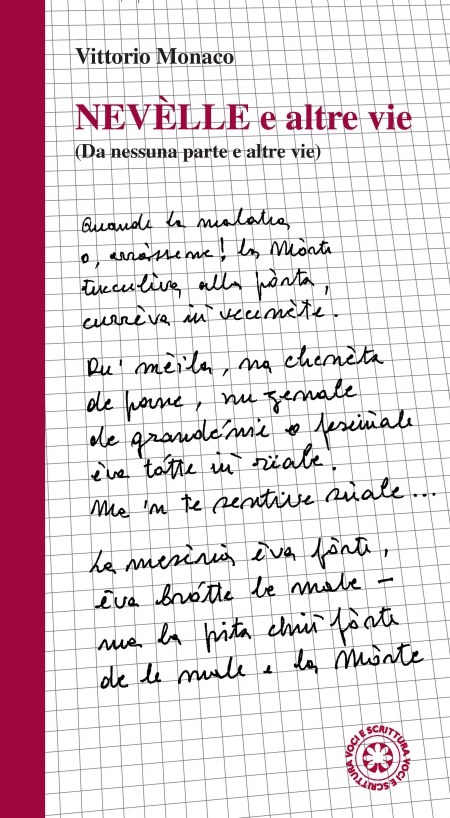 Vittorio Monaco
NEVÈLLE e altre vie
(Da nessuna parte e altre vie)
Quande la malatia
o, arràsseme! la Mòrte
tucculiva alla pòrta,
currèva in vecenète.
Du' mèila, na chenèta
de pane, nu zenale
de grandénie o fasciuale
èva tótte in riiale!
Ma 'n te sentive suale...
La mesèria èva fòrte,
èva brótte le male –
ma la pita chiù fòrte
de le male e la Mòrte
VOCI E SCRITTURA VOCI E SCRITTURA